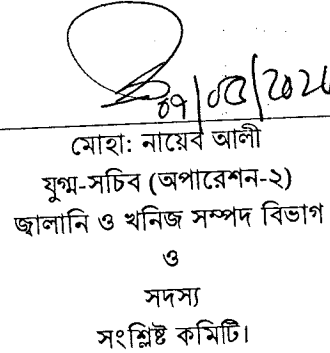 মোহা: নায়েব আলী
যুগ্ম-সচিব (অপারেশন-২)
জ্বালানি ও খনিজ সম্পদ বিভাগ
ও
সদস্য
সংশ্লিষ্ট কমিটি।